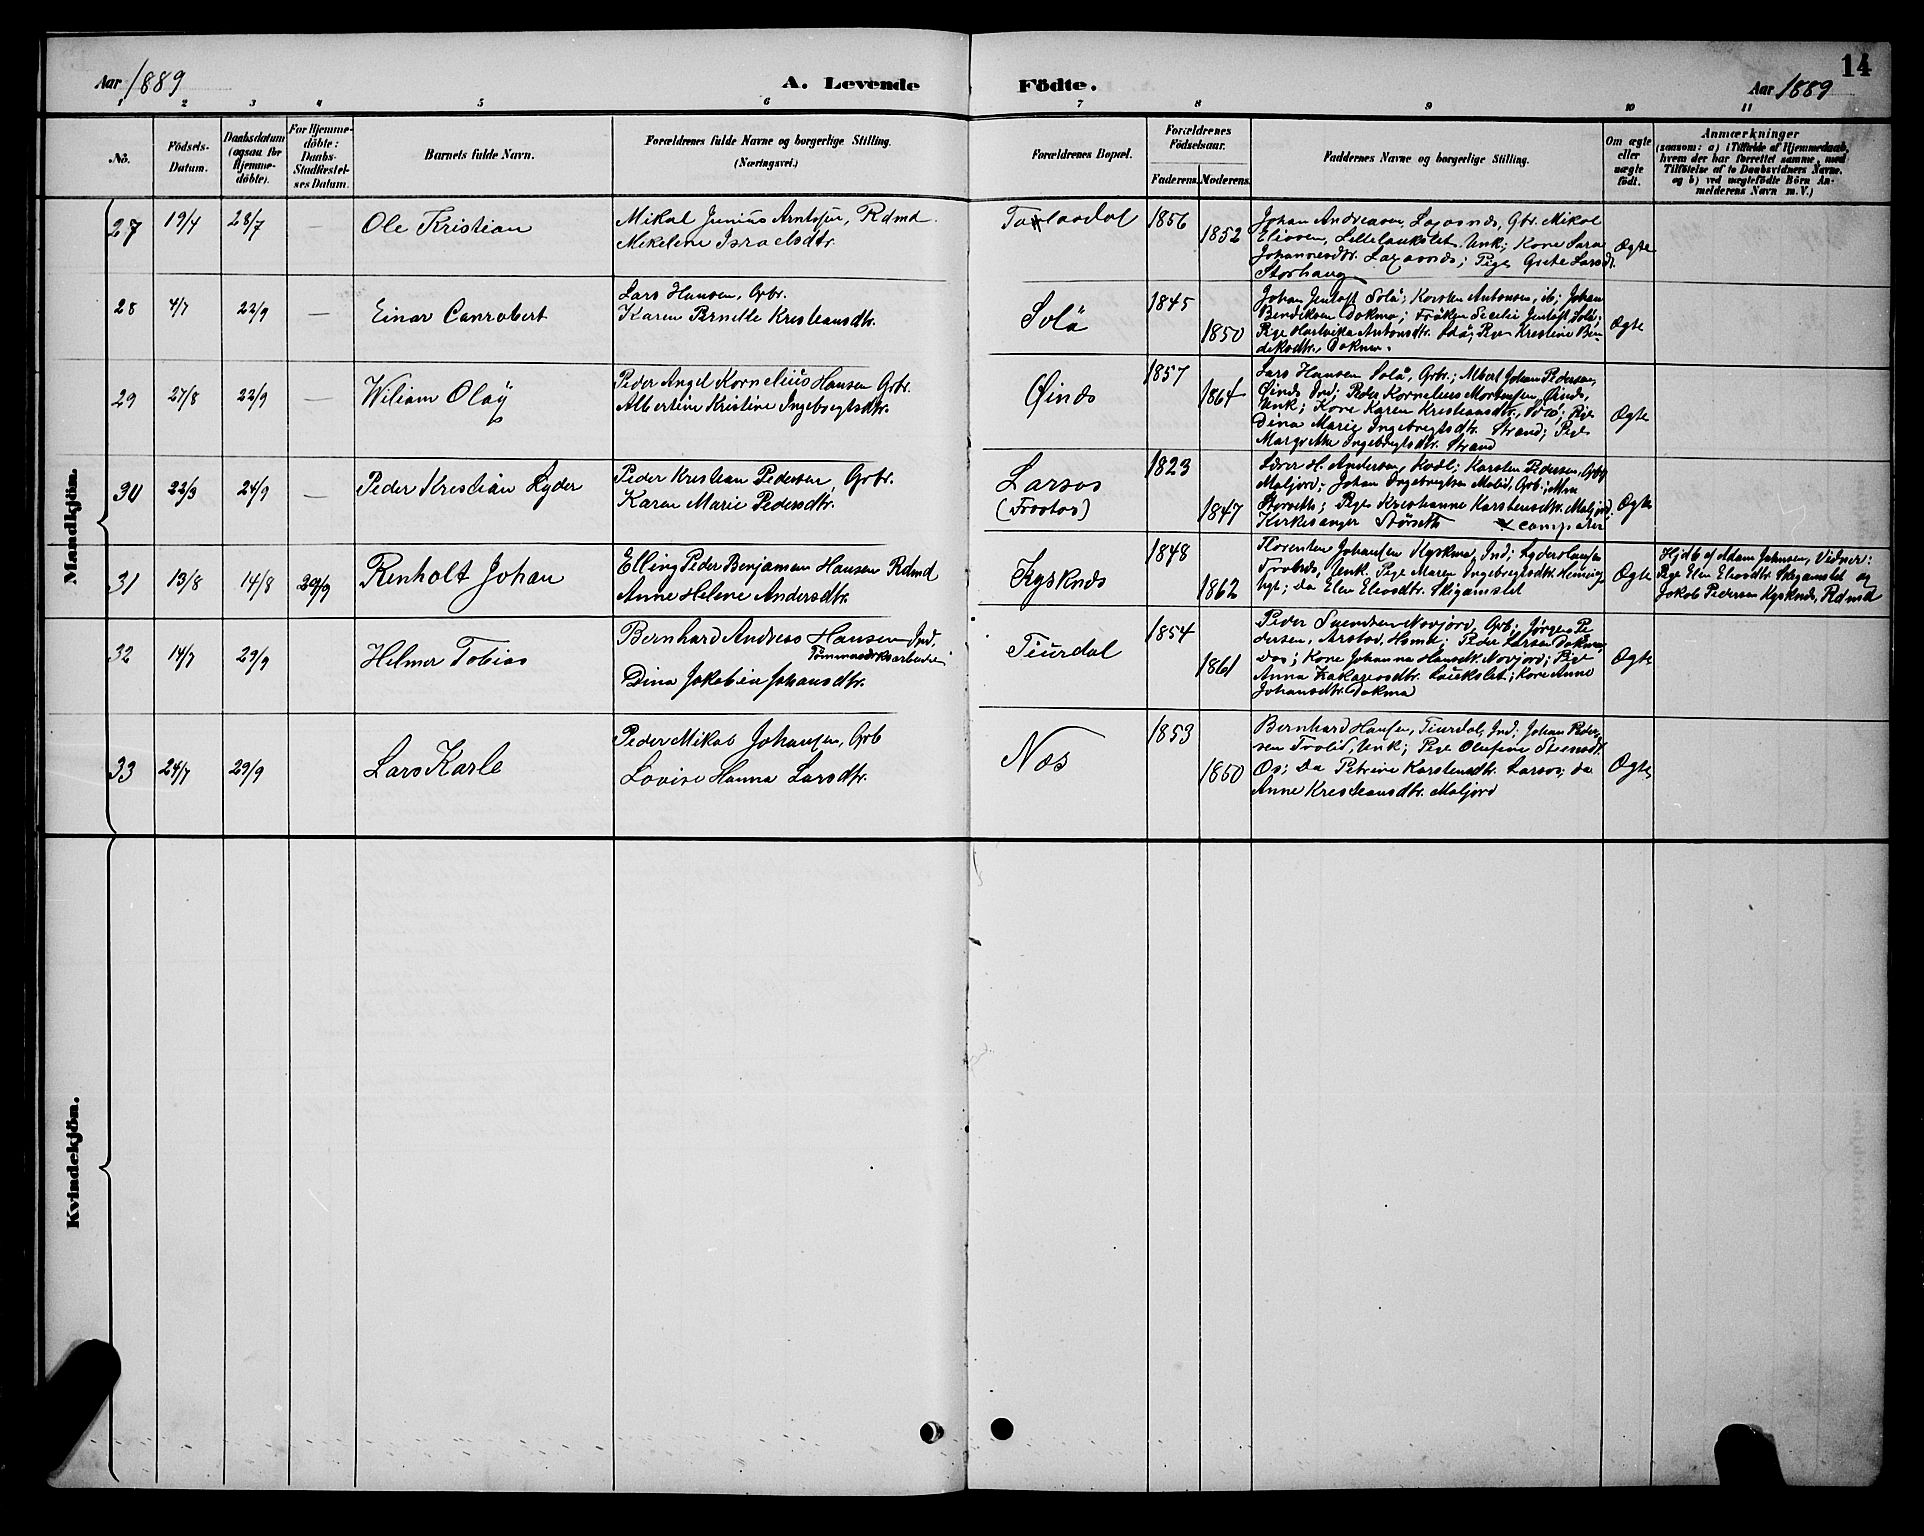 14
Aar 1889
A. Levende Födte.
Aar 1889
1 2 3 4 5 6 7 8 9 10 11
No.
Födsels-Datum.
Daabsdatum (ogsaa for Hjemme-döbte).
For Hjemme-döbte: Daabs-Stadfæstel-ses Datum.
Barnets fulde Navn.
Forældrenes fulde Navne og borgerlige Stilling.
(Næringsvei.)
Forældrenes Bopæl.
Forældrenes Födselsaar.
Faderens. Moderens.
Faddernes Navne og borgerlige Stilling.
Om ægte eller uægte födt.
Anmærkninger
(saasom: a) i Tilfælde af Hjemmedaab, hvem der har forrettet samme, med Tilföielse af to Daabsvidners Navne. og b) ved uægtefödte Börn An-melderens Navn m. V.)
Mandkjön.
27 19/4 28/7 — Ole Kristian
Mikal Junius Arntsen, Rdmd.
Mikeline Israelsdtr.
1856 1852
Johan Andreasen, Laxosnds, Gbr. Mikal
Eliasen, Lillelaukslet, Unk; Kone Sara
Johannesdtr. Laxosnds; Pige Grete Larsdt.
Storhaug
Ægte
28 4/7 22/9 — Einar Canrobert
Lars Hansen, Gbr.
Karen Pernille Kristiansdtr.
Solö
1845 1850
Johan Jentoft Solö; Karsten Antonsen, ib; Johan
Bendiksen Dokmo; Fröken Cecilie Jentoft, Solö;
Pige Hartvika Antonsdtr. Solö; Pige Kristine Ben-
diksdtr. Dokmo.
Ægte
29 27/8 22/9 — Wiliam Olaf
Peder Angel Kornelius Hansen Gbr.
Albertine Kristine Ingebrigtsdtr.
Øinds
1857 1864
Lars Hansen Solö, Gbr.; Albert Johan Pedersen,
Øinds Ind; Peder Kornelius Mortensen, Øinds,
Unk; Kone Karen Kristiansdtr. Solö; Pige
Dina Marie Ingebregtsdtr. Strand; Pige
Margrethe Ingebregtsdtr. Strand
Ægte
30 22/3 24/9 — Peder Kristian Ryder
Peder Kristian Pedersen, Gbr.
Karen Marie Pedersdtr.
Larsos
(Frostos)
1823 1847
Lærer H. Andersen, Kodl; Karsten Pedersen, Gbr
Maljord; Johan Ingebregtsen Molid, Gbr.;
Storseth; Pige Kristianne Karstensdtr. Maljord
Kirkesanger Störseth
Ægte
31 13/8 14/8 29/9 Renholt Johan
Elling Peder Benjamin Hansen Rdmd
Anne Helene Andersdtr.
Kysknds
1848 1862
Florenten Johansen Kysknds, Ind; Lyder Hansen
Unk. Pige Maren Ingebregtsdtr.
Da Elen Eliasdtr. Skigamslet
Ægte
Hjdb af Adam Johnsen, Vidner:
Pige Elen Eliasdtr. Skigamslet og
Jakob Pedersen Kysknds, Rdmd
32 14/7 29/9 Helmer Tobias
Bernhard Andreas Hansen Ind,
Dina Jakobine Johansdtr.
Tiurdal
1854 1861
Peder Svendsen Novjord, Gbr; Jörgen Pe-
dersen, Arstad, Hsmd; Peder Larsen Dokmo,
Das; Kone Johanna Hansdtr. Novjord; Pige
Anna Zakariasdtr. Laukslet; Kone Anne
Johansdtr. Dokmo
Ægte
33 24/7 29/9 Lars Karle
Peder Mikal Johansen, Gbr
Lovise Hanna Larsdtr.
Næs
1853 1850
Bernhard Hansen, Tiurdal, Ind; Johan Peder-
sen Trolid, Unk; Pige Olufine Steensdt.
Os; Da Petrine Karstensdtr. Larsos; da
Anne Kristiansdtr. Maljord
Ægte
Kvindekjön.